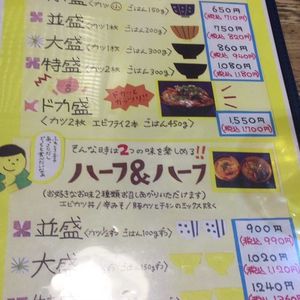 650円
(税込 710円)
並盛 〈カツ1枚 ごはん200g〉
750円
(税込 820円)
大盛 〈カツ1枚 ごはん300g〉
860円
(税込 940円)
特盛 〈カツ2枚 ごはん300g〉
1,080円
(税込 1,180円)
ドカ盛
〈カツ2枚 エビフライ2本 ごはん450g〉
1,550円
(税込 1,700円)
そんな時は2つの味を楽しめる!!
ハーフ&ハーフ
(お好きなお味2種類お召しあがりいただけます)
並盛
ごはん100g
900円
(税込 990円)
大盛
ごはん150g
1,020円
(税込 1,120円)
1,240円